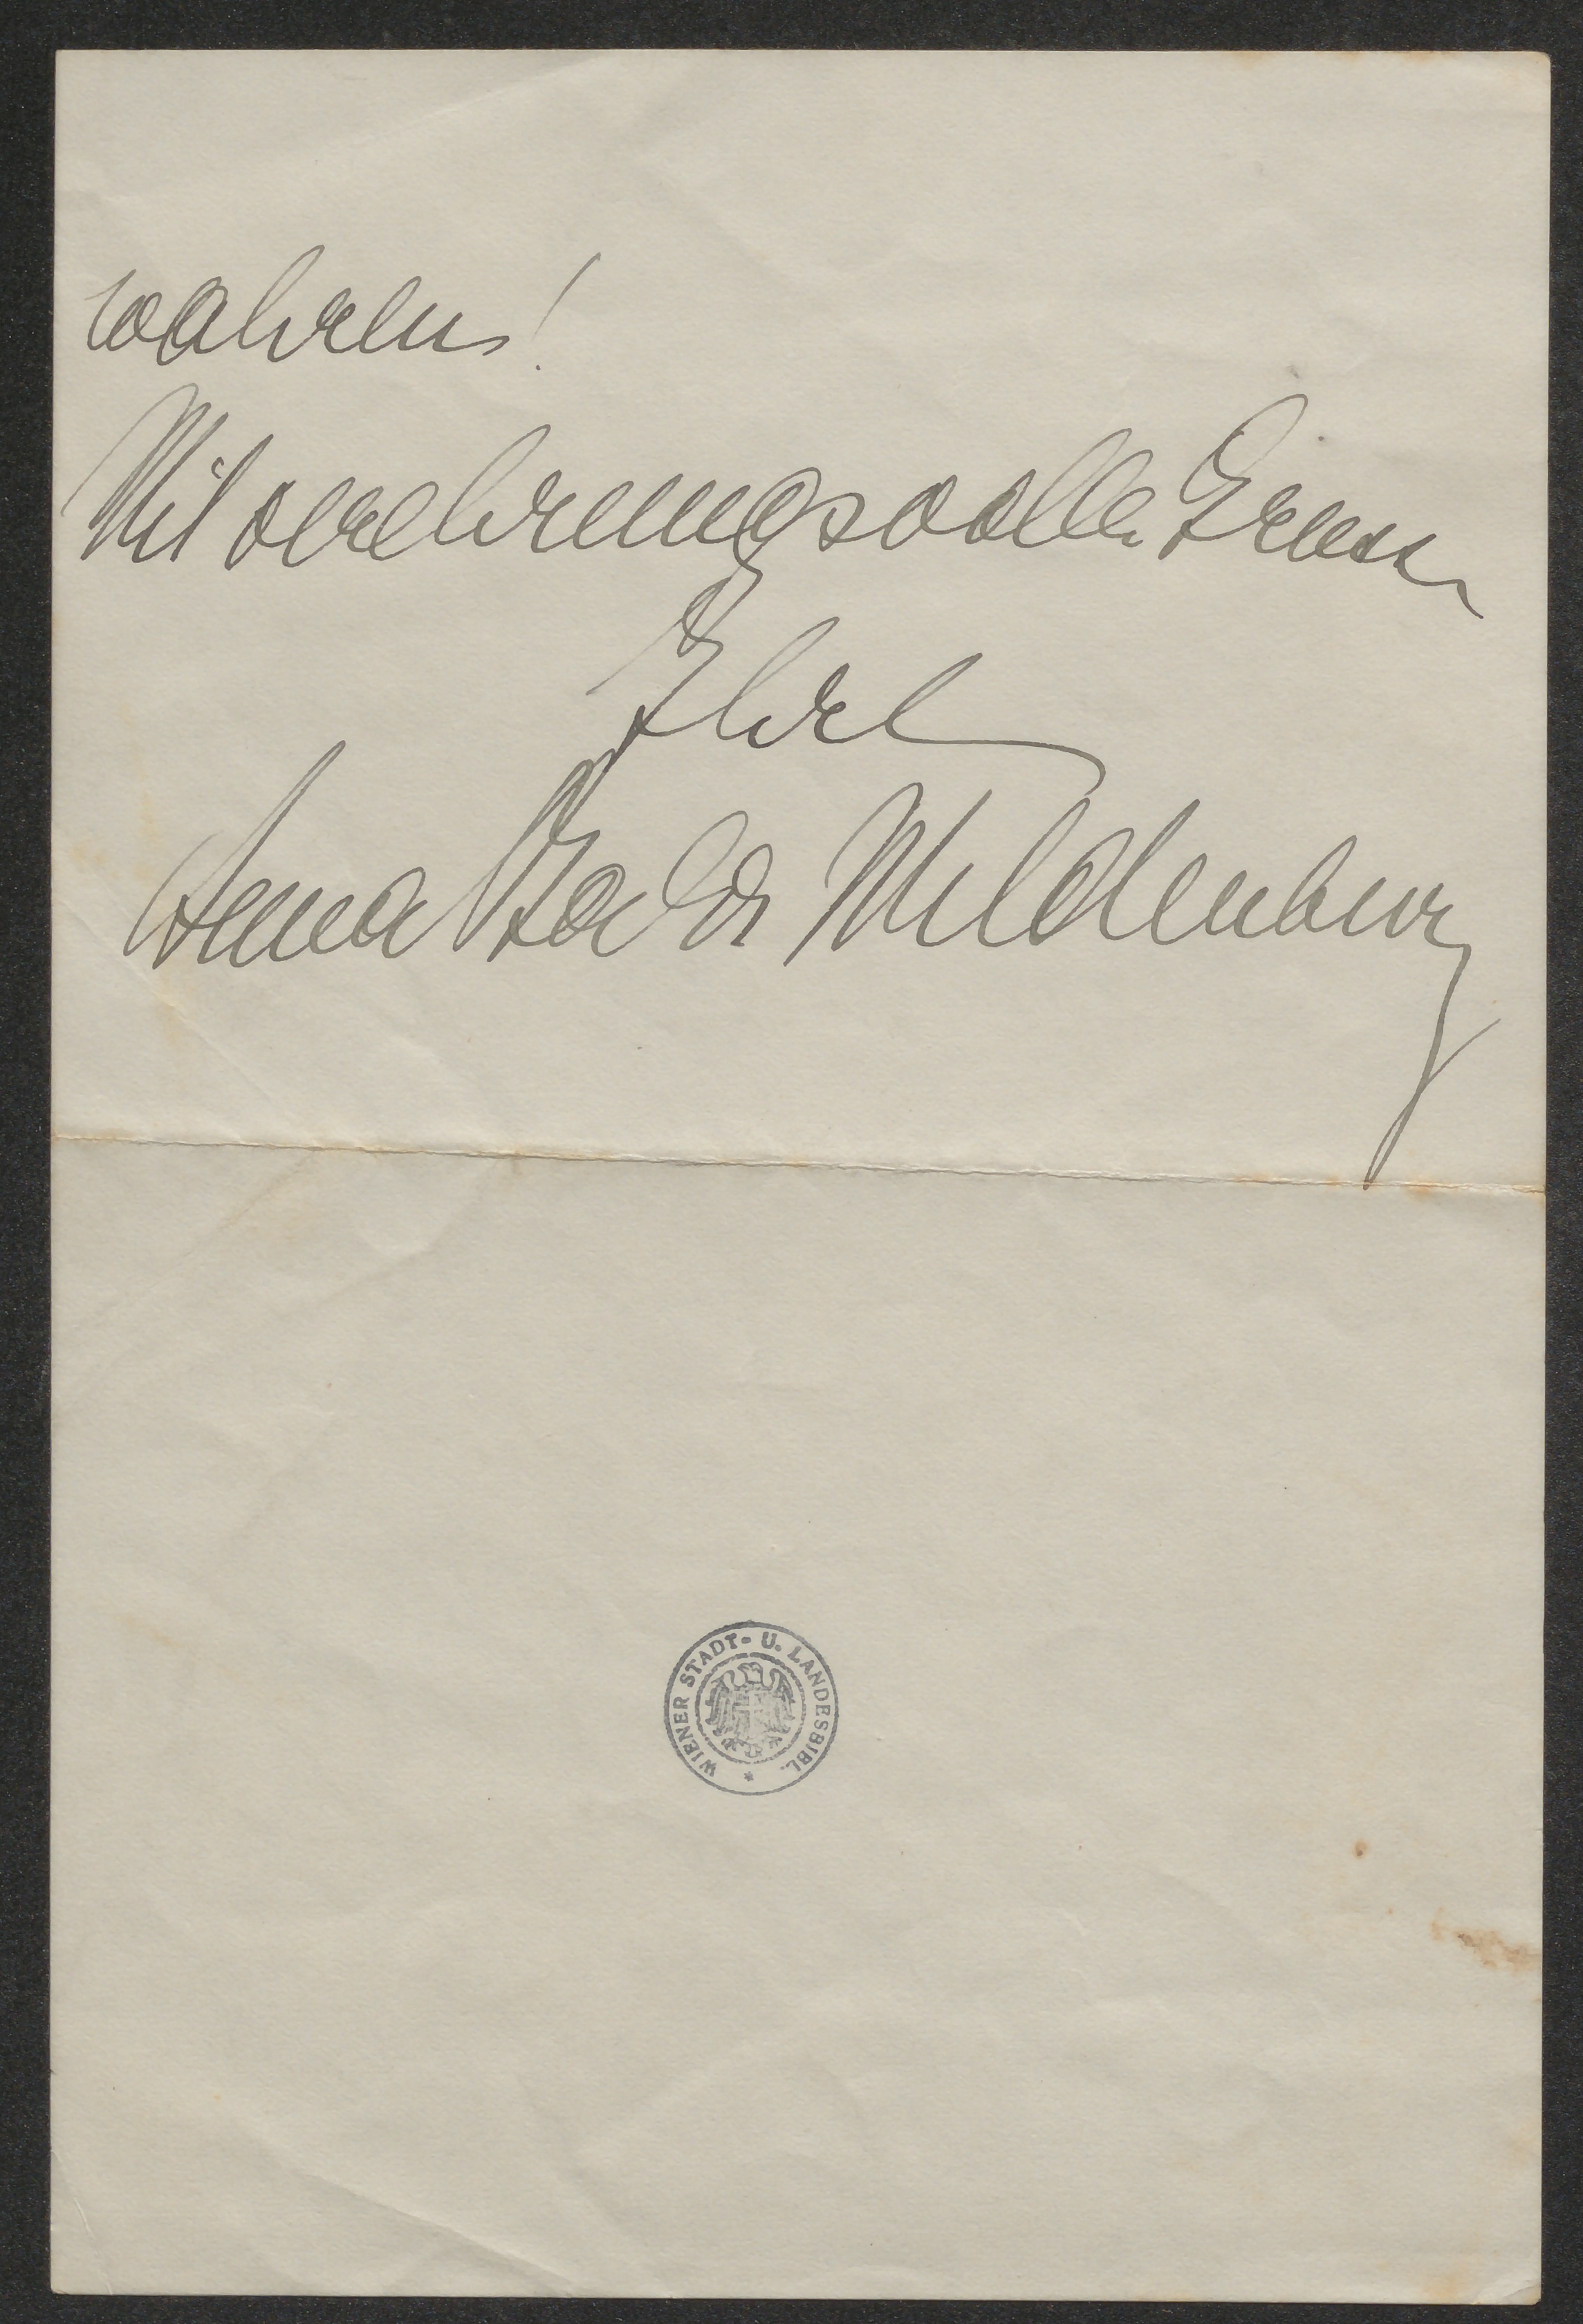 wahren!
Mit verehrungsvollen Grüssen
Ihre
Anna Bahr Mildenburg
WIENER STADT- U. LANDESBIBL. *